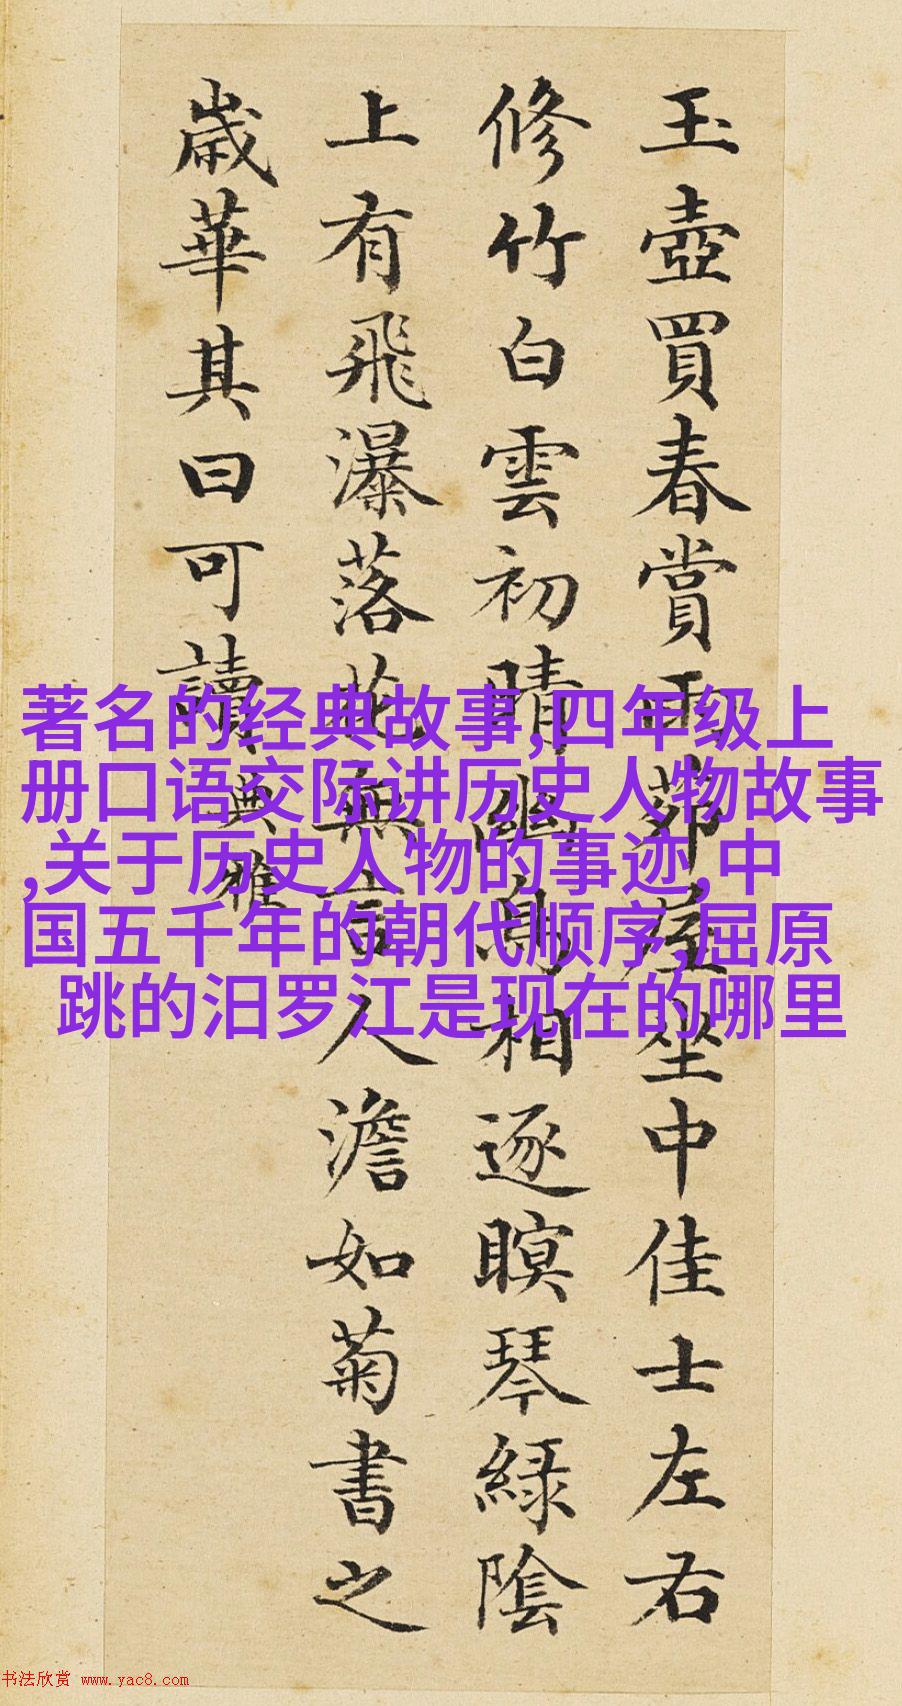 玉壺買春賞雨茆屋坐中佳士左右
修竹白雲初晴幽鳥相逐瞑琴綠陰
上有飛瀑落花無言人澹如菊書之
歲華其曰可讀
典雅
著名的经典故事,四年级上
册口语交际讲历史人物故事
,关于历史人物的事迹,中
国五千年的朝代顺序,屈原
跳的汨罗江是现在的哪里
书法欣赏 www.yac8.com